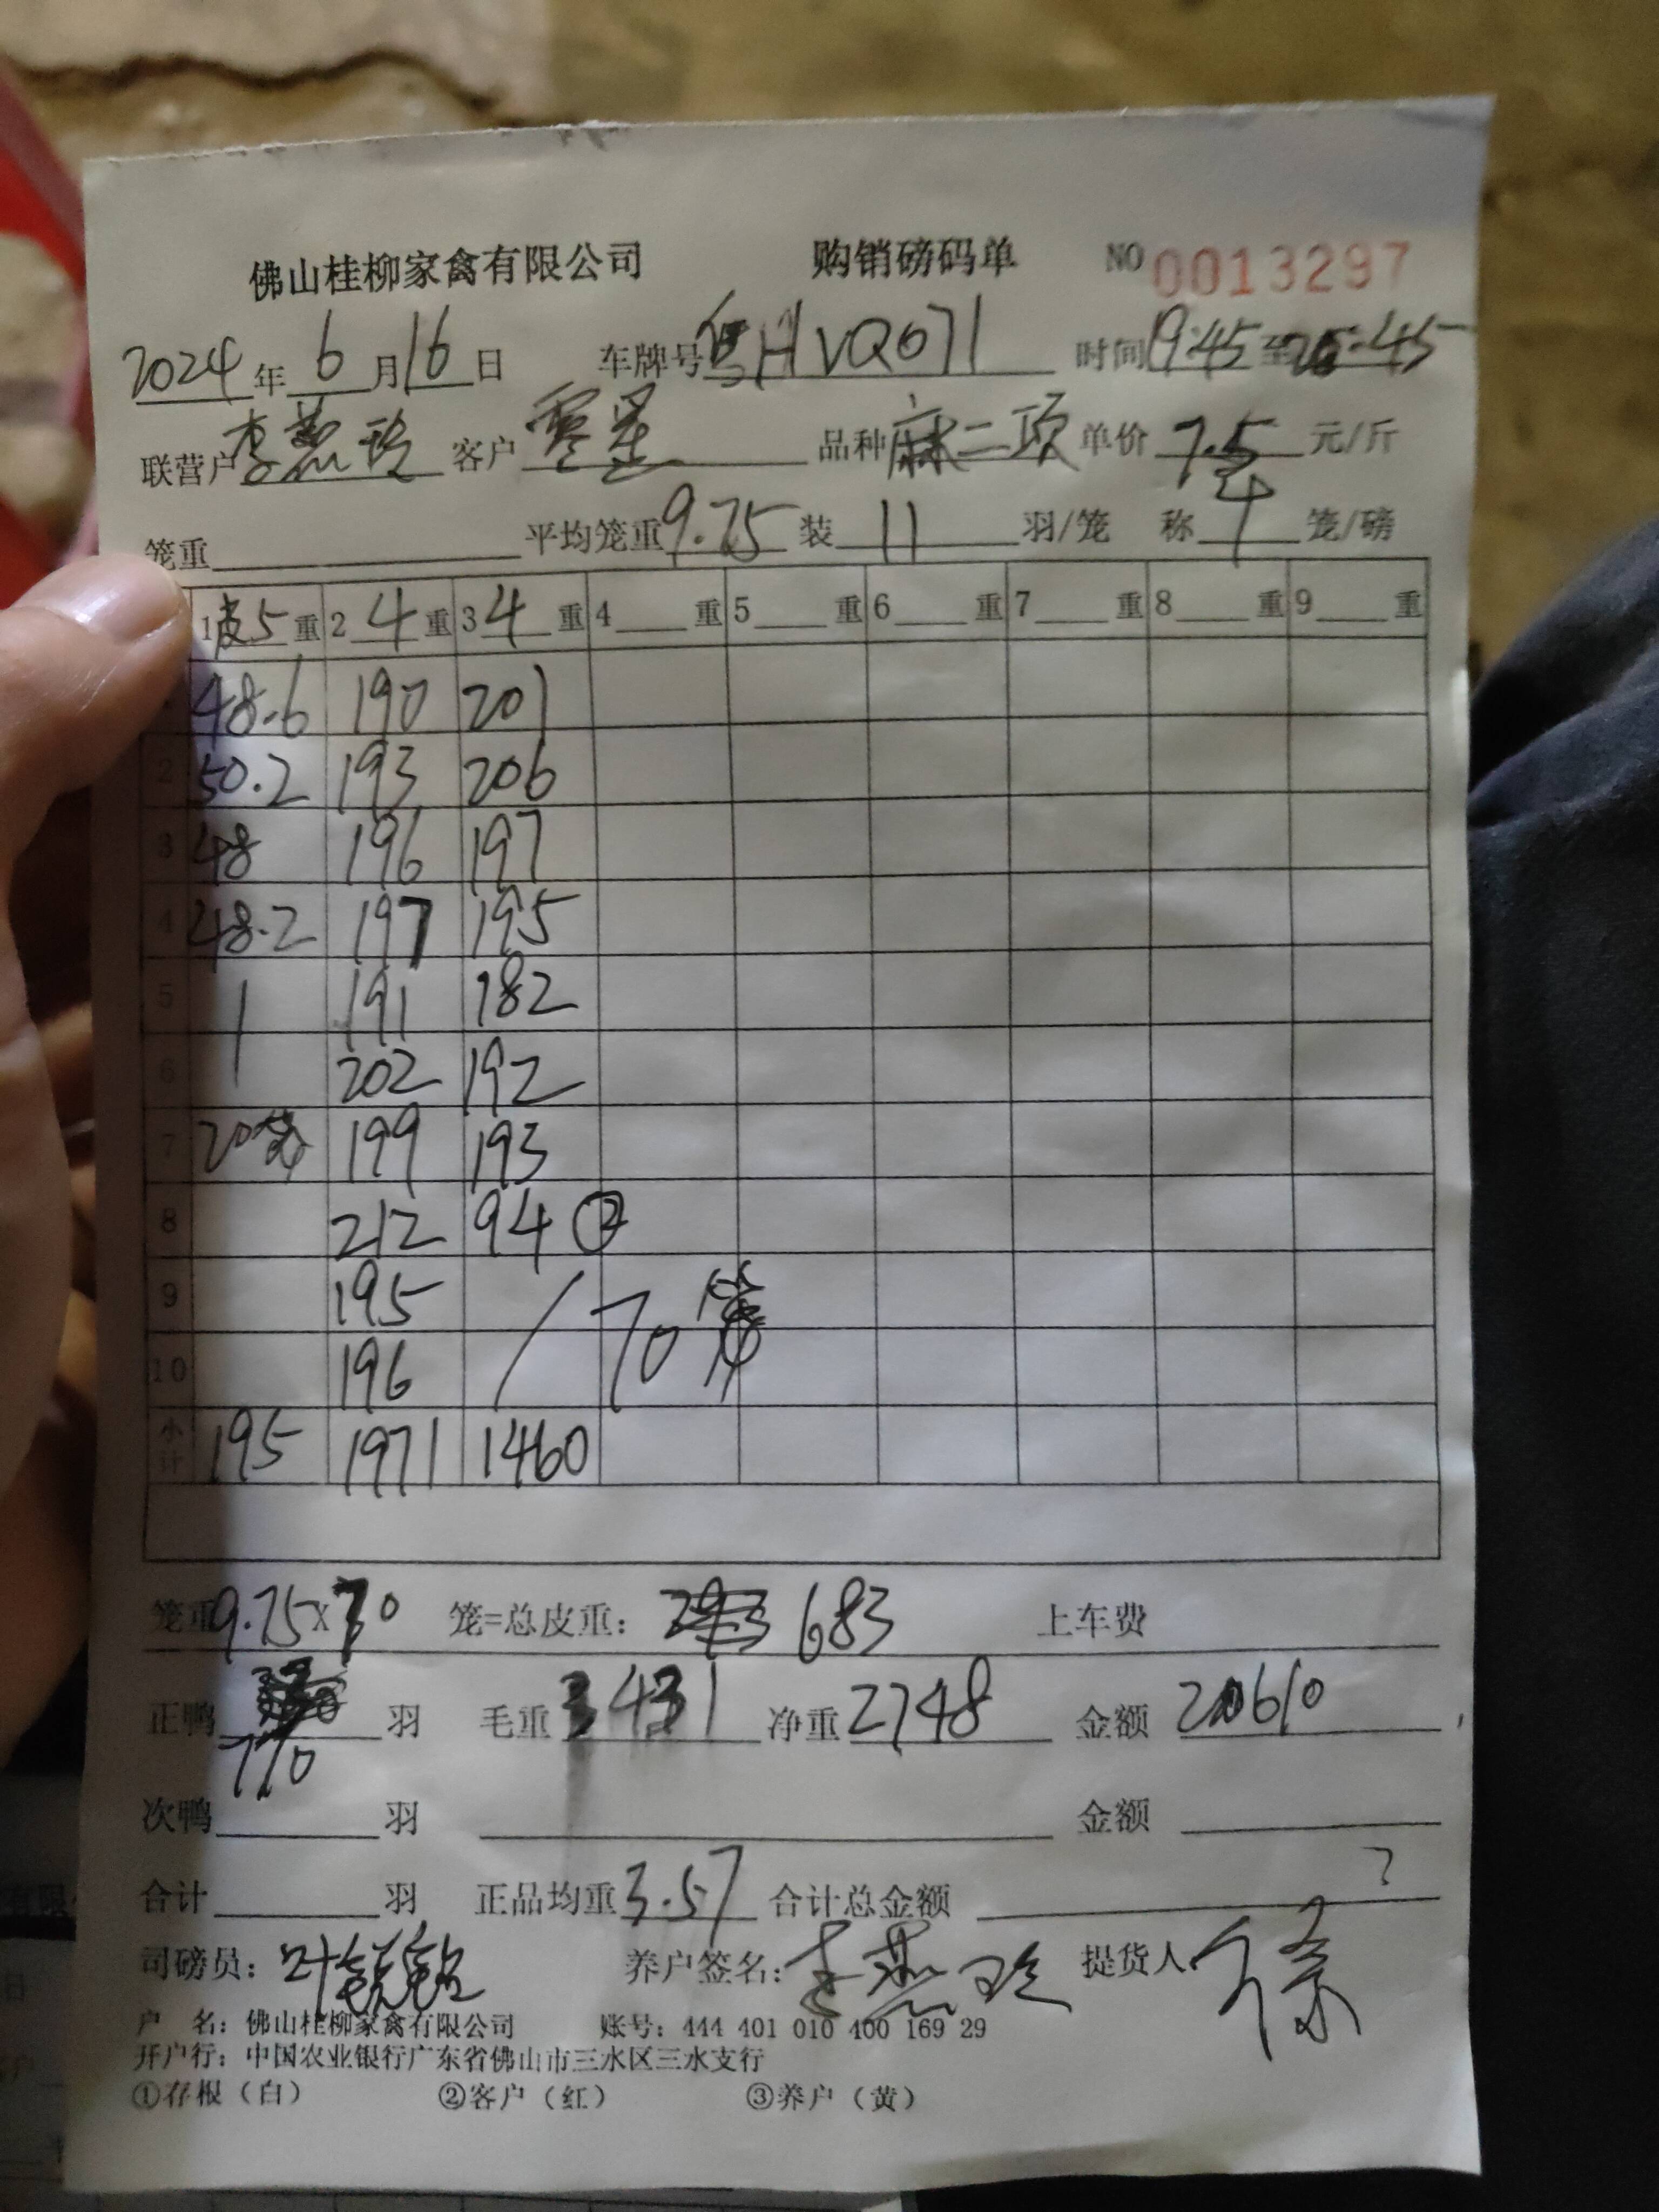 佛山桂柳家禽有限公司 购销磅码单 NO 0013297
2024年6月16日 车牌号粤HVQ071 时间19:45至20:45
联营户李燕玲 客户零星 品种麻二项 单价7.5元/斤
笼重 平均笼重9.75装11羽/笼 称4笼/磅
1皮5重 2 4重 3 4重 4 重 5 重 6 重 7 重 8 重 9 重
48.6 190 201
2 50.2 193 206
3 48 196 197
4 48.2 197 195
5 191 182
6 202 192
7 20笼 199 193
8 212 94 ②
9 195
10 196 / 70笼
小计 195 1971 1460
笼重9.75×70 笼=总皮重: 683 上车费
正鸭 770 羽 毛重3431 净重2748 金额20610
次鸭 羽 金额
合计 羽 正品均重3.57 合计总金额
司磅员: 叶 养户签名: 李燕玲 提货人
户 名: 佛山桂柳家禽有限公司 账号: 444 401 010 400 169 29
开户行: 中国农业银行广东省佛山市三水区三水支行
①存根（白） ②客户（红） ③养户（黄）